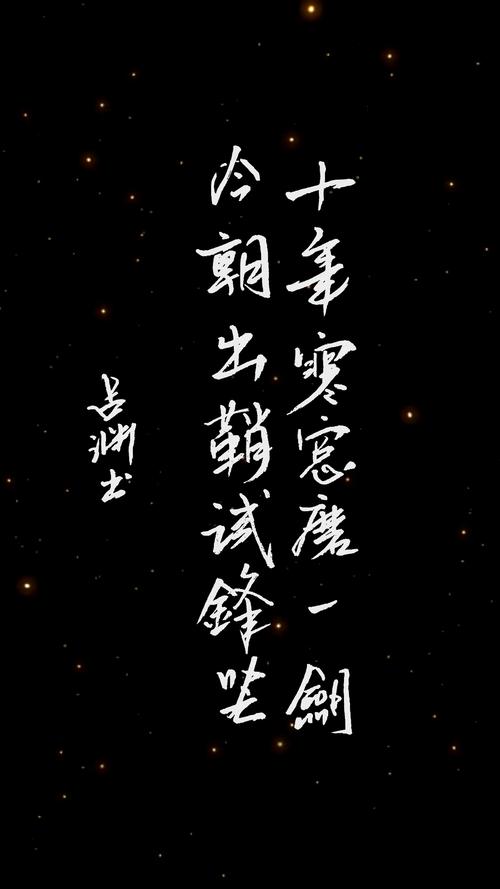 十年寒窓磨一劍
今朝出鞘試鋒芒
占渊书